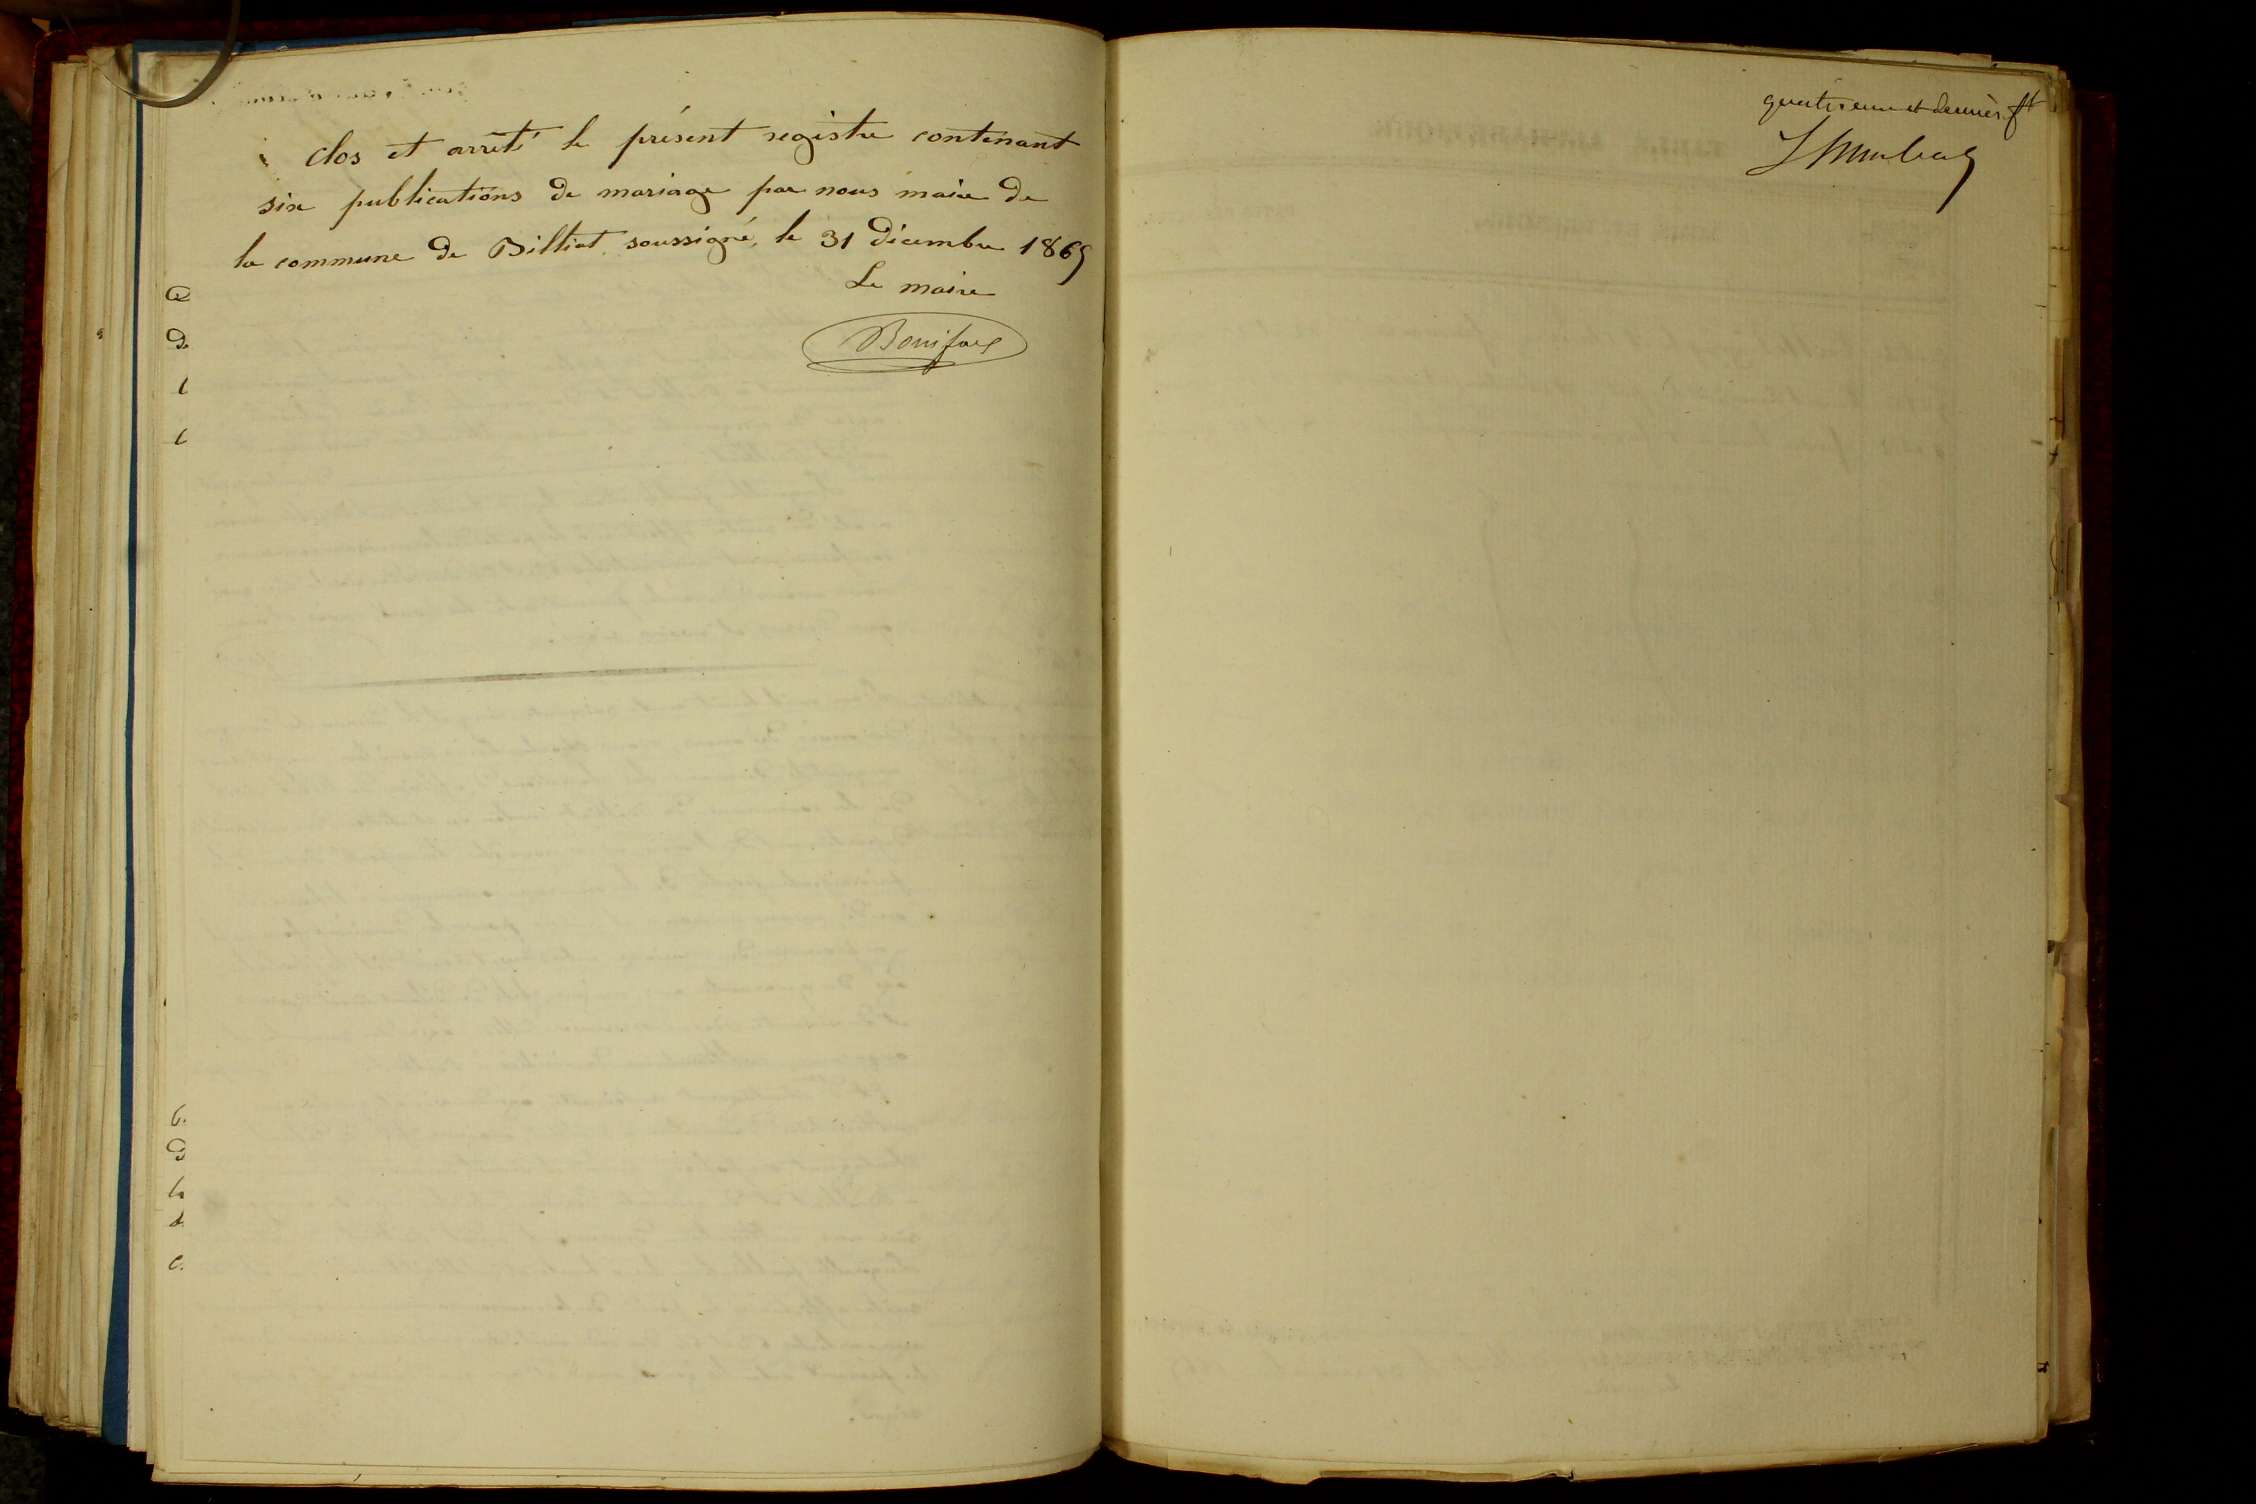 Clos et arrêté le présent registre contenant
six publications de mariage par nous maire de
la commune de Billiat soussigné, le 31 décembre 1869
Le maire
Boniface
quatrieme et dernier ft